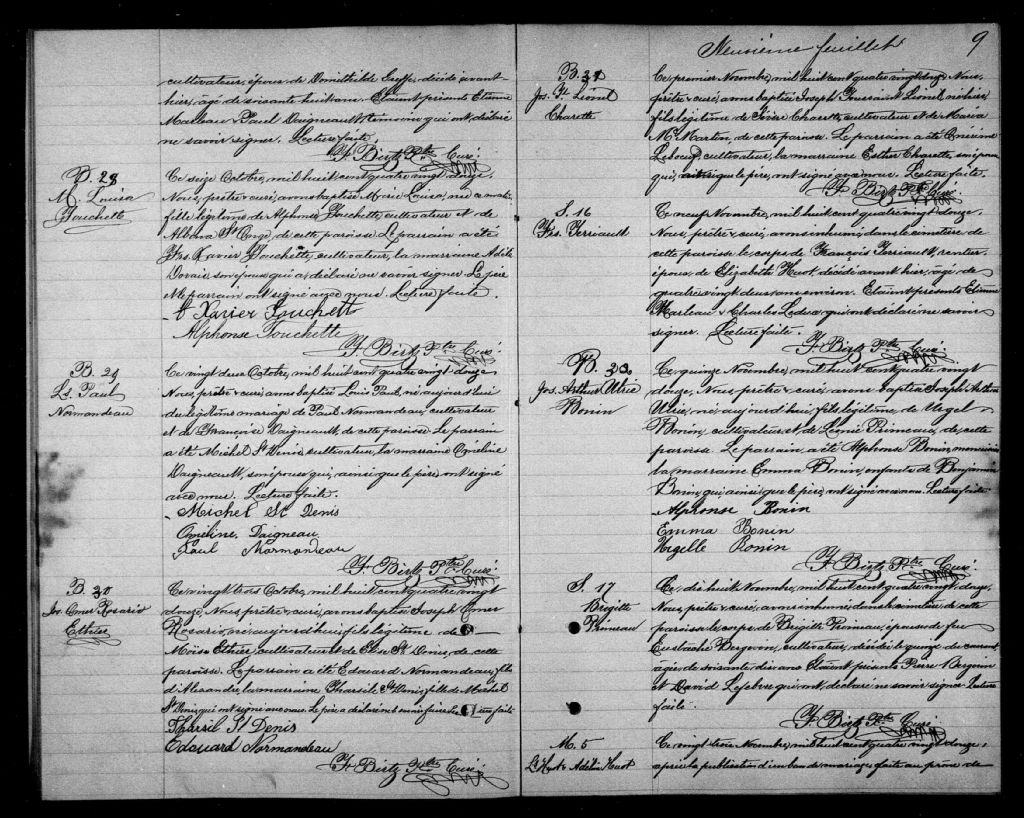 cultivateur, époux de Domithilde Goffe, décédé avant-
hier, âgé de soixante huit ans. Etaient présents Etienne
Marleau & Paul Daigneault, témoins qui ont déclaré
ne savoir signer. Lecture faite.
F. Birtz Ptre Curé.
B. 28
M. Louisa
Touchette
Ce seize Octobre, mil huit cent quatre vingt douze.
Nous, prêtre & curé, avons baptisé Marie Louisa, née ce matin
fille légitime de Alphonse Touchette, cultivateur et de
Albona St Onge, de cette paroisse. Le parrain a été
Frs Xavier Touchette, cultivateur, la marraine Adèle
Dorais son épouse qui a déclaré ne savoir signer. Le père
& le parrain ont signé avec nous. Lecture faite.
F Xavier Touchett
Alphonse Touchette
F. Birtz Ptre Curé
B. 29
Ls Paul
Normandeau
Ce vingt deux Octobre, mil huit cent quatre vingt douze
Nous, prêtre & curé, avons baptisé Louis Paul, né aujourd'hui
du légitime mariage de Paul Normandeau, cultivateur
et de Françoise Daigneault, de cette paroisse. Le parrain
a été Michel St Denis, cultivateur, la marraine Omeline
Daigneault, son épouse qui, ainsi que le père, ont signé
avec nous. Lecture faite.
Michel St Denis
Omeline Daigneau
Paul Normandeau
F. Birtz Ptre Curé
B. 30
Jos. Omer Rosario
Ethier
Ce vingt trois Octobre, mil huit cent quatre vingt
douze, Nous, prêtre & curé, avons baptisé Joseph Omer
Rosario, né aujourd'hui, fils légitime de
Moïse Ethier, cultivateur et de Elise St Denis, de cette
paroisse. Le parrain a été Edouard Normandeau, fils
d'Alexandre, la marraine Tharsile St Denis, fille de Michel
St Denis, qui ont signé avec nous. Le père a déclaré ne savoir faire Lecture faite
Tharsil St Denis
Edouard Normandeau
F. Birtz Ptre Curé
Neuvième feuillet
9
B. 31
Jos. Ts Lionel
Charette
Ce premier Novembre, mil huit cent quatre vingt douze. Nous,
prêtre & curé, avons baptisé Joseph Toussaint Lionel, né hier,
fils légitime de Sévère Charette, cultivateur et de Maria
Martin, de cette paroisse. Le parrain a été Onésime
Leboeuf, cultivateur, la marraine Esther Charette, son épouse
qui, ainsi que le père, ont signé avec nous. Lecture faite.
F. Birtz Ptre Curé
S. 16
Frs. Terriault
Ce neuf Novembre, mil huit cent quatre vingt douze.
Nous, prêtre & curé, avons inhumé, dans le cimetière de
cette paroisse, le corps de François Terriault, rentier,
époux de Elizabeth Huot, décédé avant hier, âgé de
quatre vingt deux ans environ. Etaient présents Etienne
Marleau & Charles Ledoux, qui ont déclaré ne savoir
signer. Lecture faite.
F. Birtz Ptre Curé
B. 32
Jos. Arthur Ulric
Bonin
Ce quinze Novembre, mil huit cent quatre vingt
douze, Nous, prêtre & curé, avons baptisé Joseph Arthur
Ulric, né aujourd'hui, fils légitime de Urgel
Bonin, cultivateur et de Léonie Primeau, de cette
paroisse. Le parrain a été Alphonse Bonin, menuisier
la marraine Emma Bonin, enfants de Benjamin
Bonin, qui, ainsi que le père, ont signé avec nous. Lecture faite
Alphonse Bonin
Emma Bonin
Urgelle Bonin
F. Birtz Ptre Curé.
S. 17
Brigitte
Primeau
Ce dix huit Novembre, mil huit cent quatre vingt douze,
Nous, prêtre & curé, avons inhumé dans le cimetière de cette
paroisse le corps de Brigitte Primeau, épouse de feu
Eustache Bergevin, cultivateur, décédée le quinze du courant
âgée de soixante dix ans. Etaient présents Pierre Bergevin
et David Lefebvre qui ont déclaré ne savoir signer. Lecture
faite.
F. Birtz Ptre Curé
M. 5
Ls Huot & Adélia Huot
Ce vingt trois Novembre, mil huit cent quatre vingt douze,
après la publication d'un ban de mariage, faite au prône de